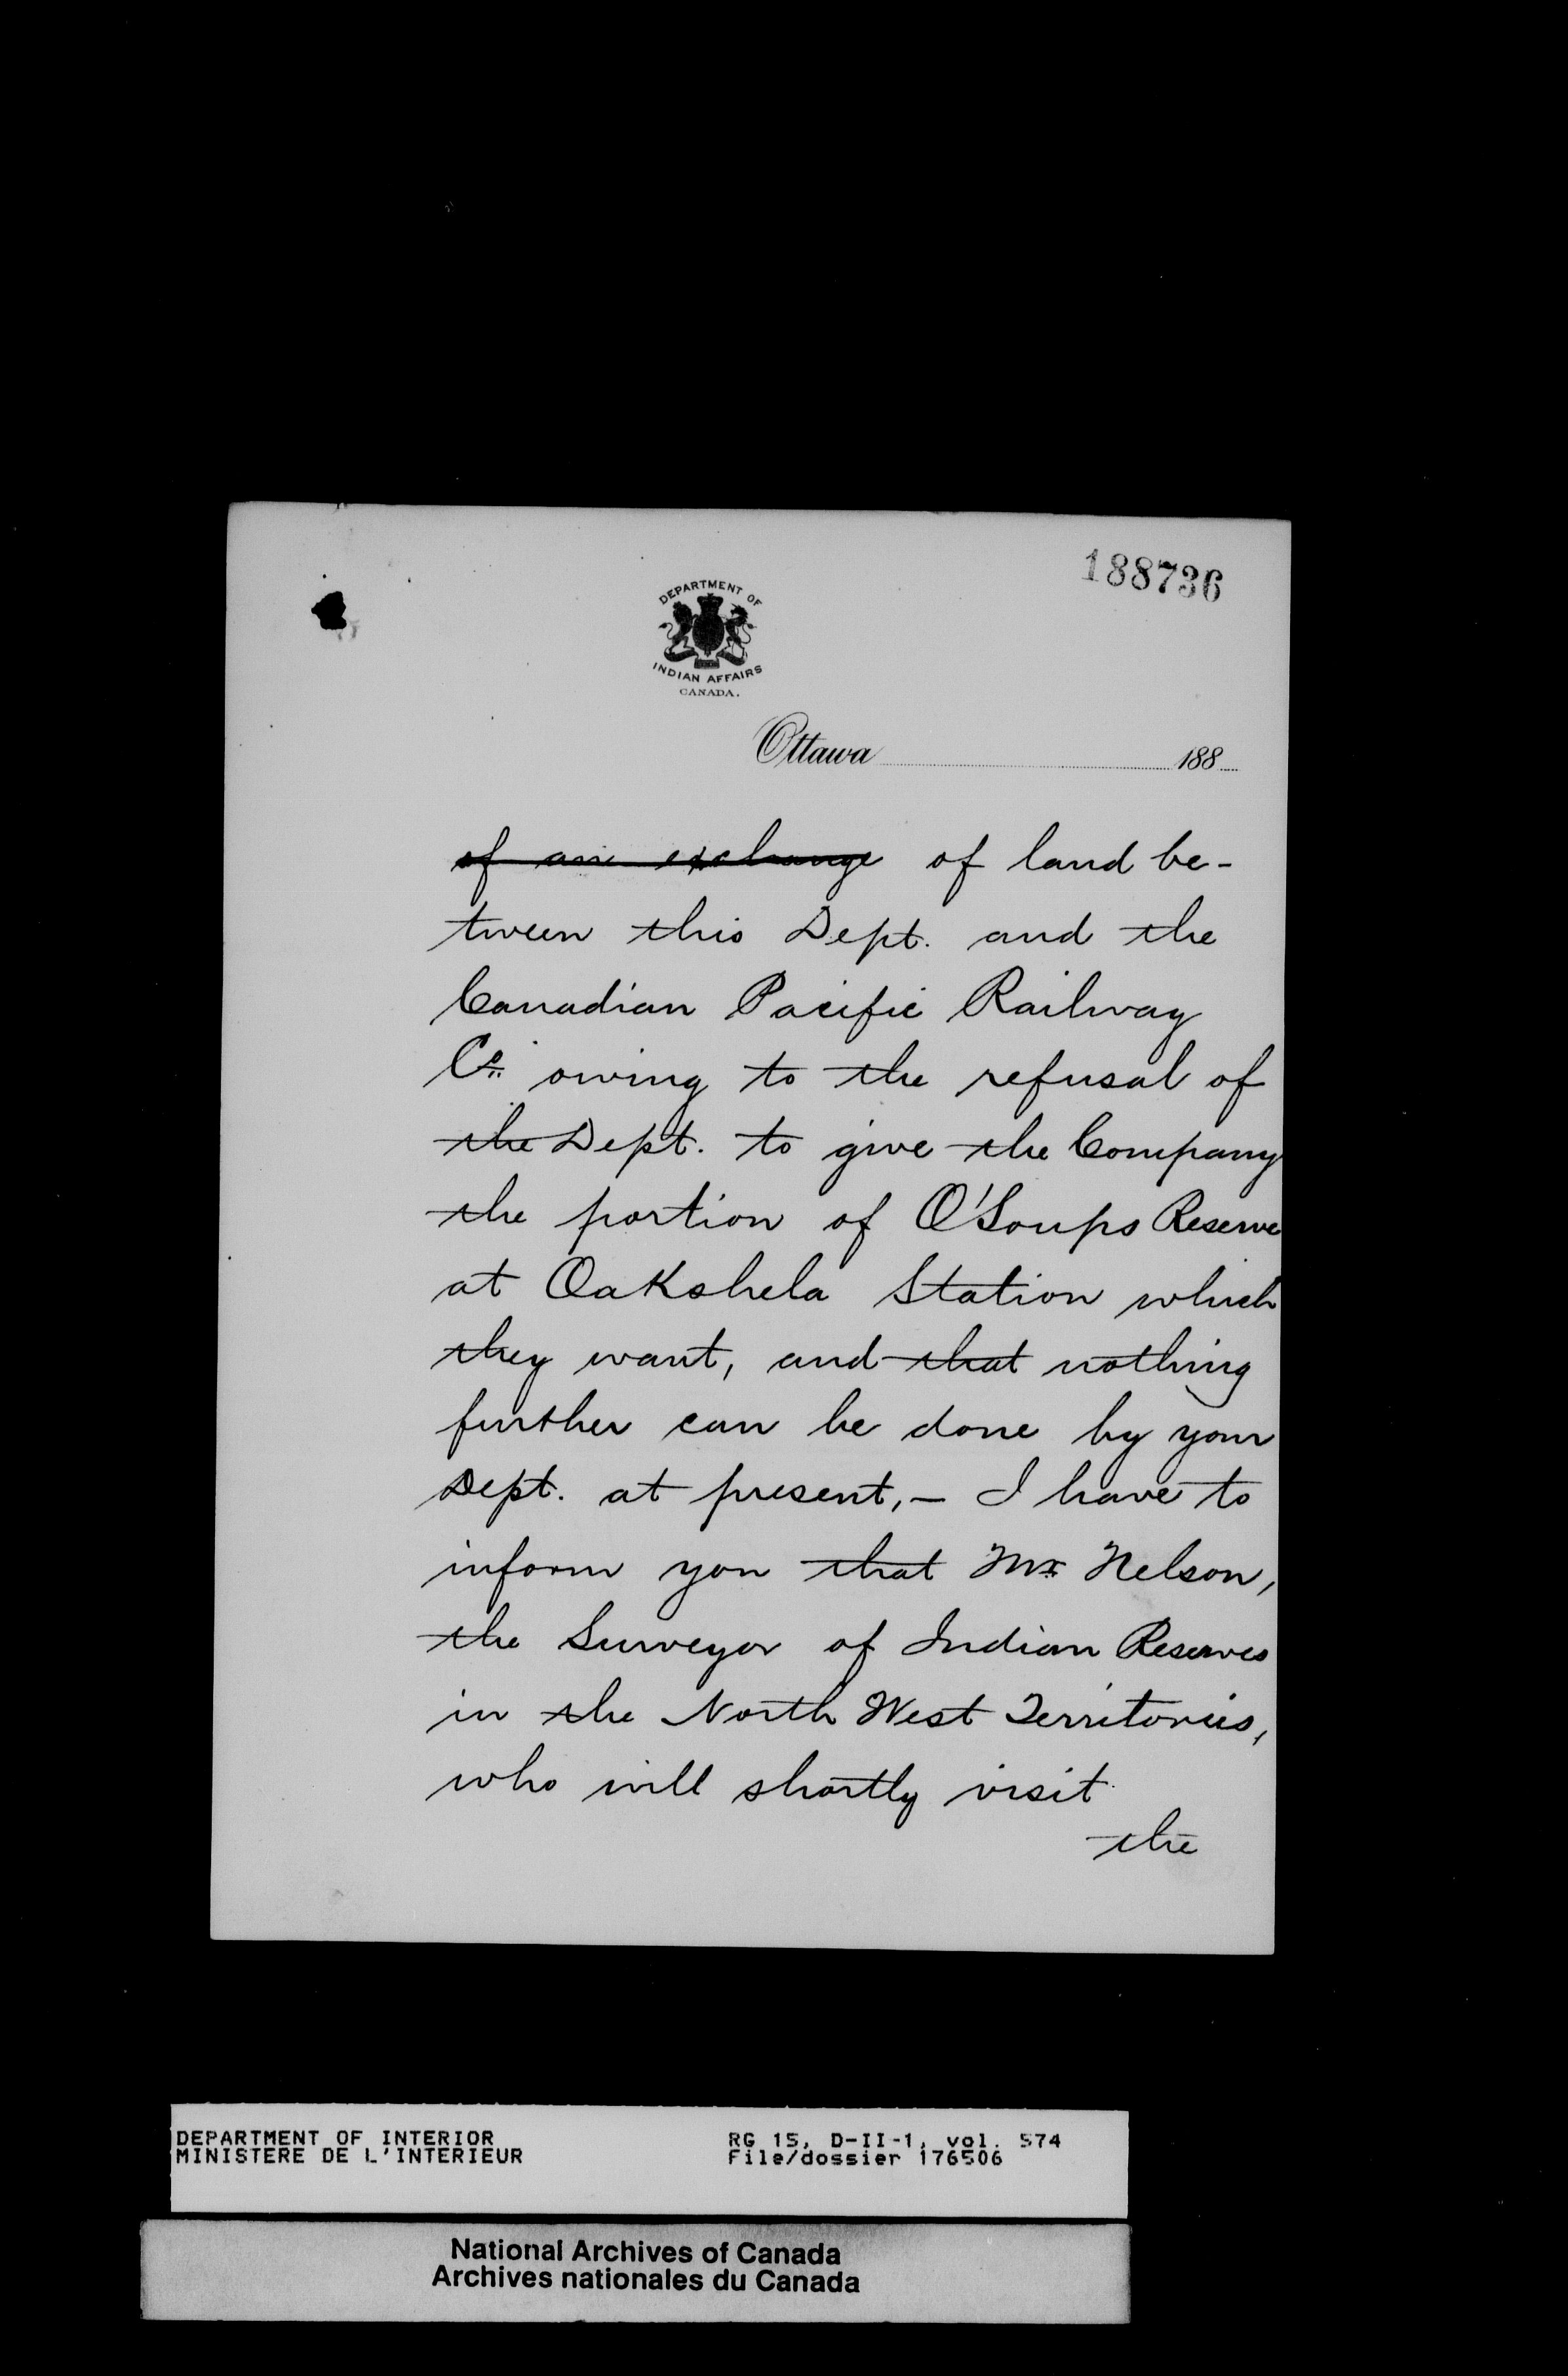 188736
DEPARTMENT OF
INDIAN AFFAIRS
CANADA.
Ottawa 188
of an exchange of land be-
tween this Dept. and the
Canadian Pacific Railway
Co. owing to the refusal of
the Dept. to give the Company
the portion of O'Soups Reserve
at Oakshela Station which
they want, and that nothing
further can be done by your
Dept. at present,— I have to
inform you that Mr. Nelson,
the Surveyor of Indian Reserves
in the North West Territories,
who will shortly visit
the
DEPARTMENT OF INTERIOR RG 15, D-II-1, vol. 574
MINISTERE DE L'INTERIEUR File/dossier 176506
National Archives of Canada
Archives nationales du Canada